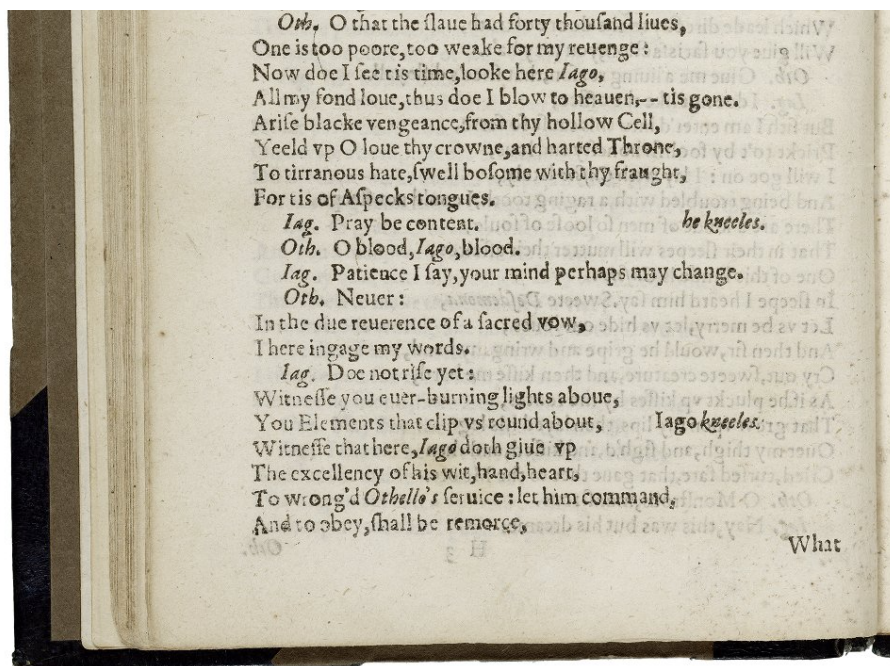 Oth. O that the ſlaue had forty thouſand liues,
One is too poore, too weake for my reuenge:
Now doe I ſee tis time, looke here Iago,
All my fond loue, thus doe I blow to heauen,-- tis gone.
Ariſe blacke vengeance, from thy hollow Cell,
Yeeld vp O loue thy crowne, and harted Throne,
To tirranous hate, ſwell boſome with thy fraught,
For tis of Aſpecks tongues.
Iag. Pray be content. he kneeles.
Oth. O blood, Iago, blood.
Iag. Patience I ſay, your mind perhaps may change.
Oth. Neuer:
In the due reuerence of a ſacred vow,
I here ingage my words.
Iag. Doe not riſe yet:
Witneſſe you euer-burning lights aboue,
You Elements that clip vs round about, Iago kneeles.
Witneſſe that here, Iago doth giue vp
The excellency of his wit, hand, heart,
To wrong'd Othello's ſeruice: let him command,
And to obey, ſhall be remorce,
What